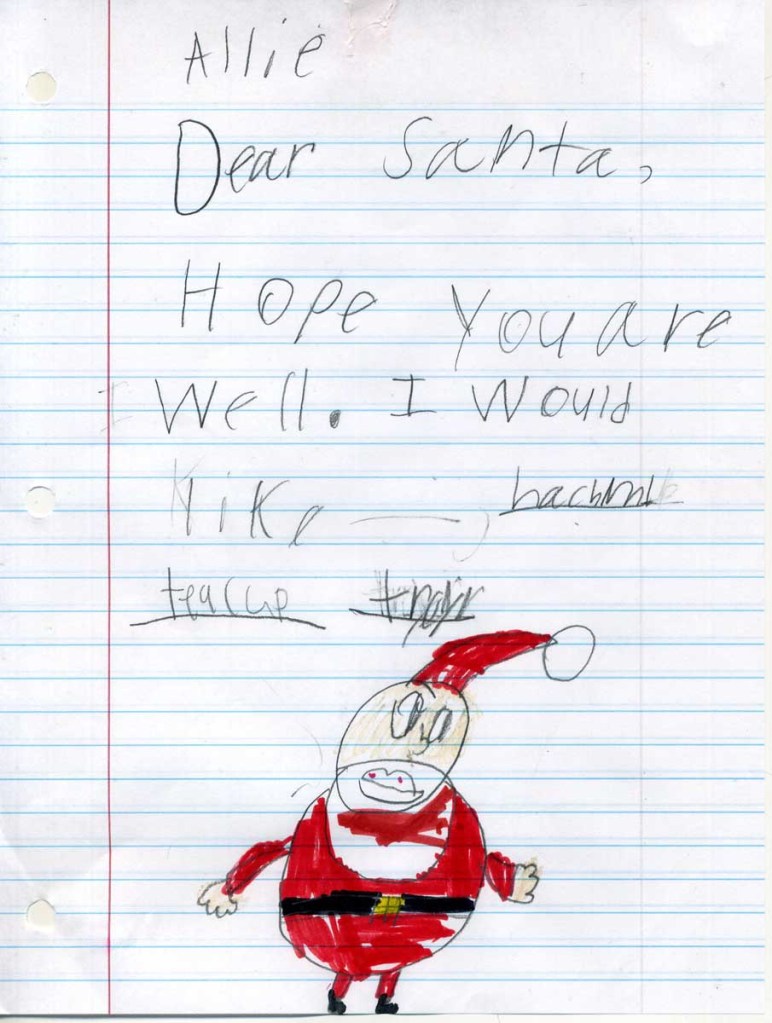 Allie
Dear Santa,
Hope You are
Well. I Would
like
teacup